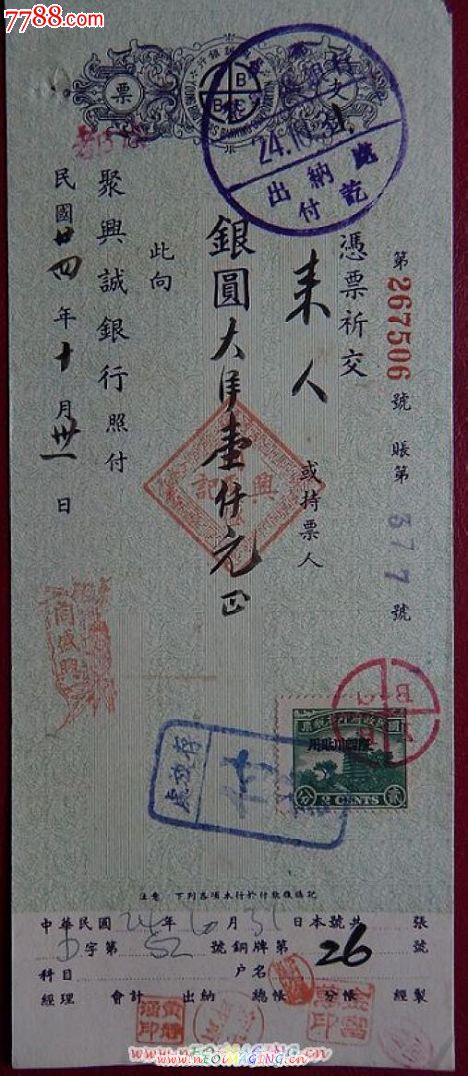 7788.com
票
B
B C
24.10.31
出納處
付訖
第267506號 賬第377號
憑票祈交
來人 或持票人
銀圓大洋壹仟元正
此向
聚興誠銀行照付
民國廿四年十月卅一日
興記
2 CENTS
分 貳
注意 下列各項本行於付款後填記
中華民國24年10月31日本號共 張
D字第52號銅牌第26號
科目 户名
經理 會計 出納 總帳 分帳 經製
www.neoimaging.cn